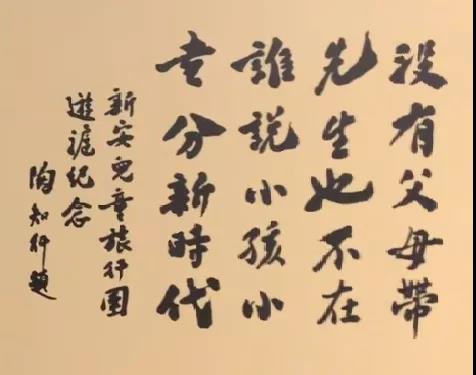 沒有父母帶
先生也不在
誰說小孩小
畫分新時代
新安兒童旅行團
遊滬紀念
陶知行題